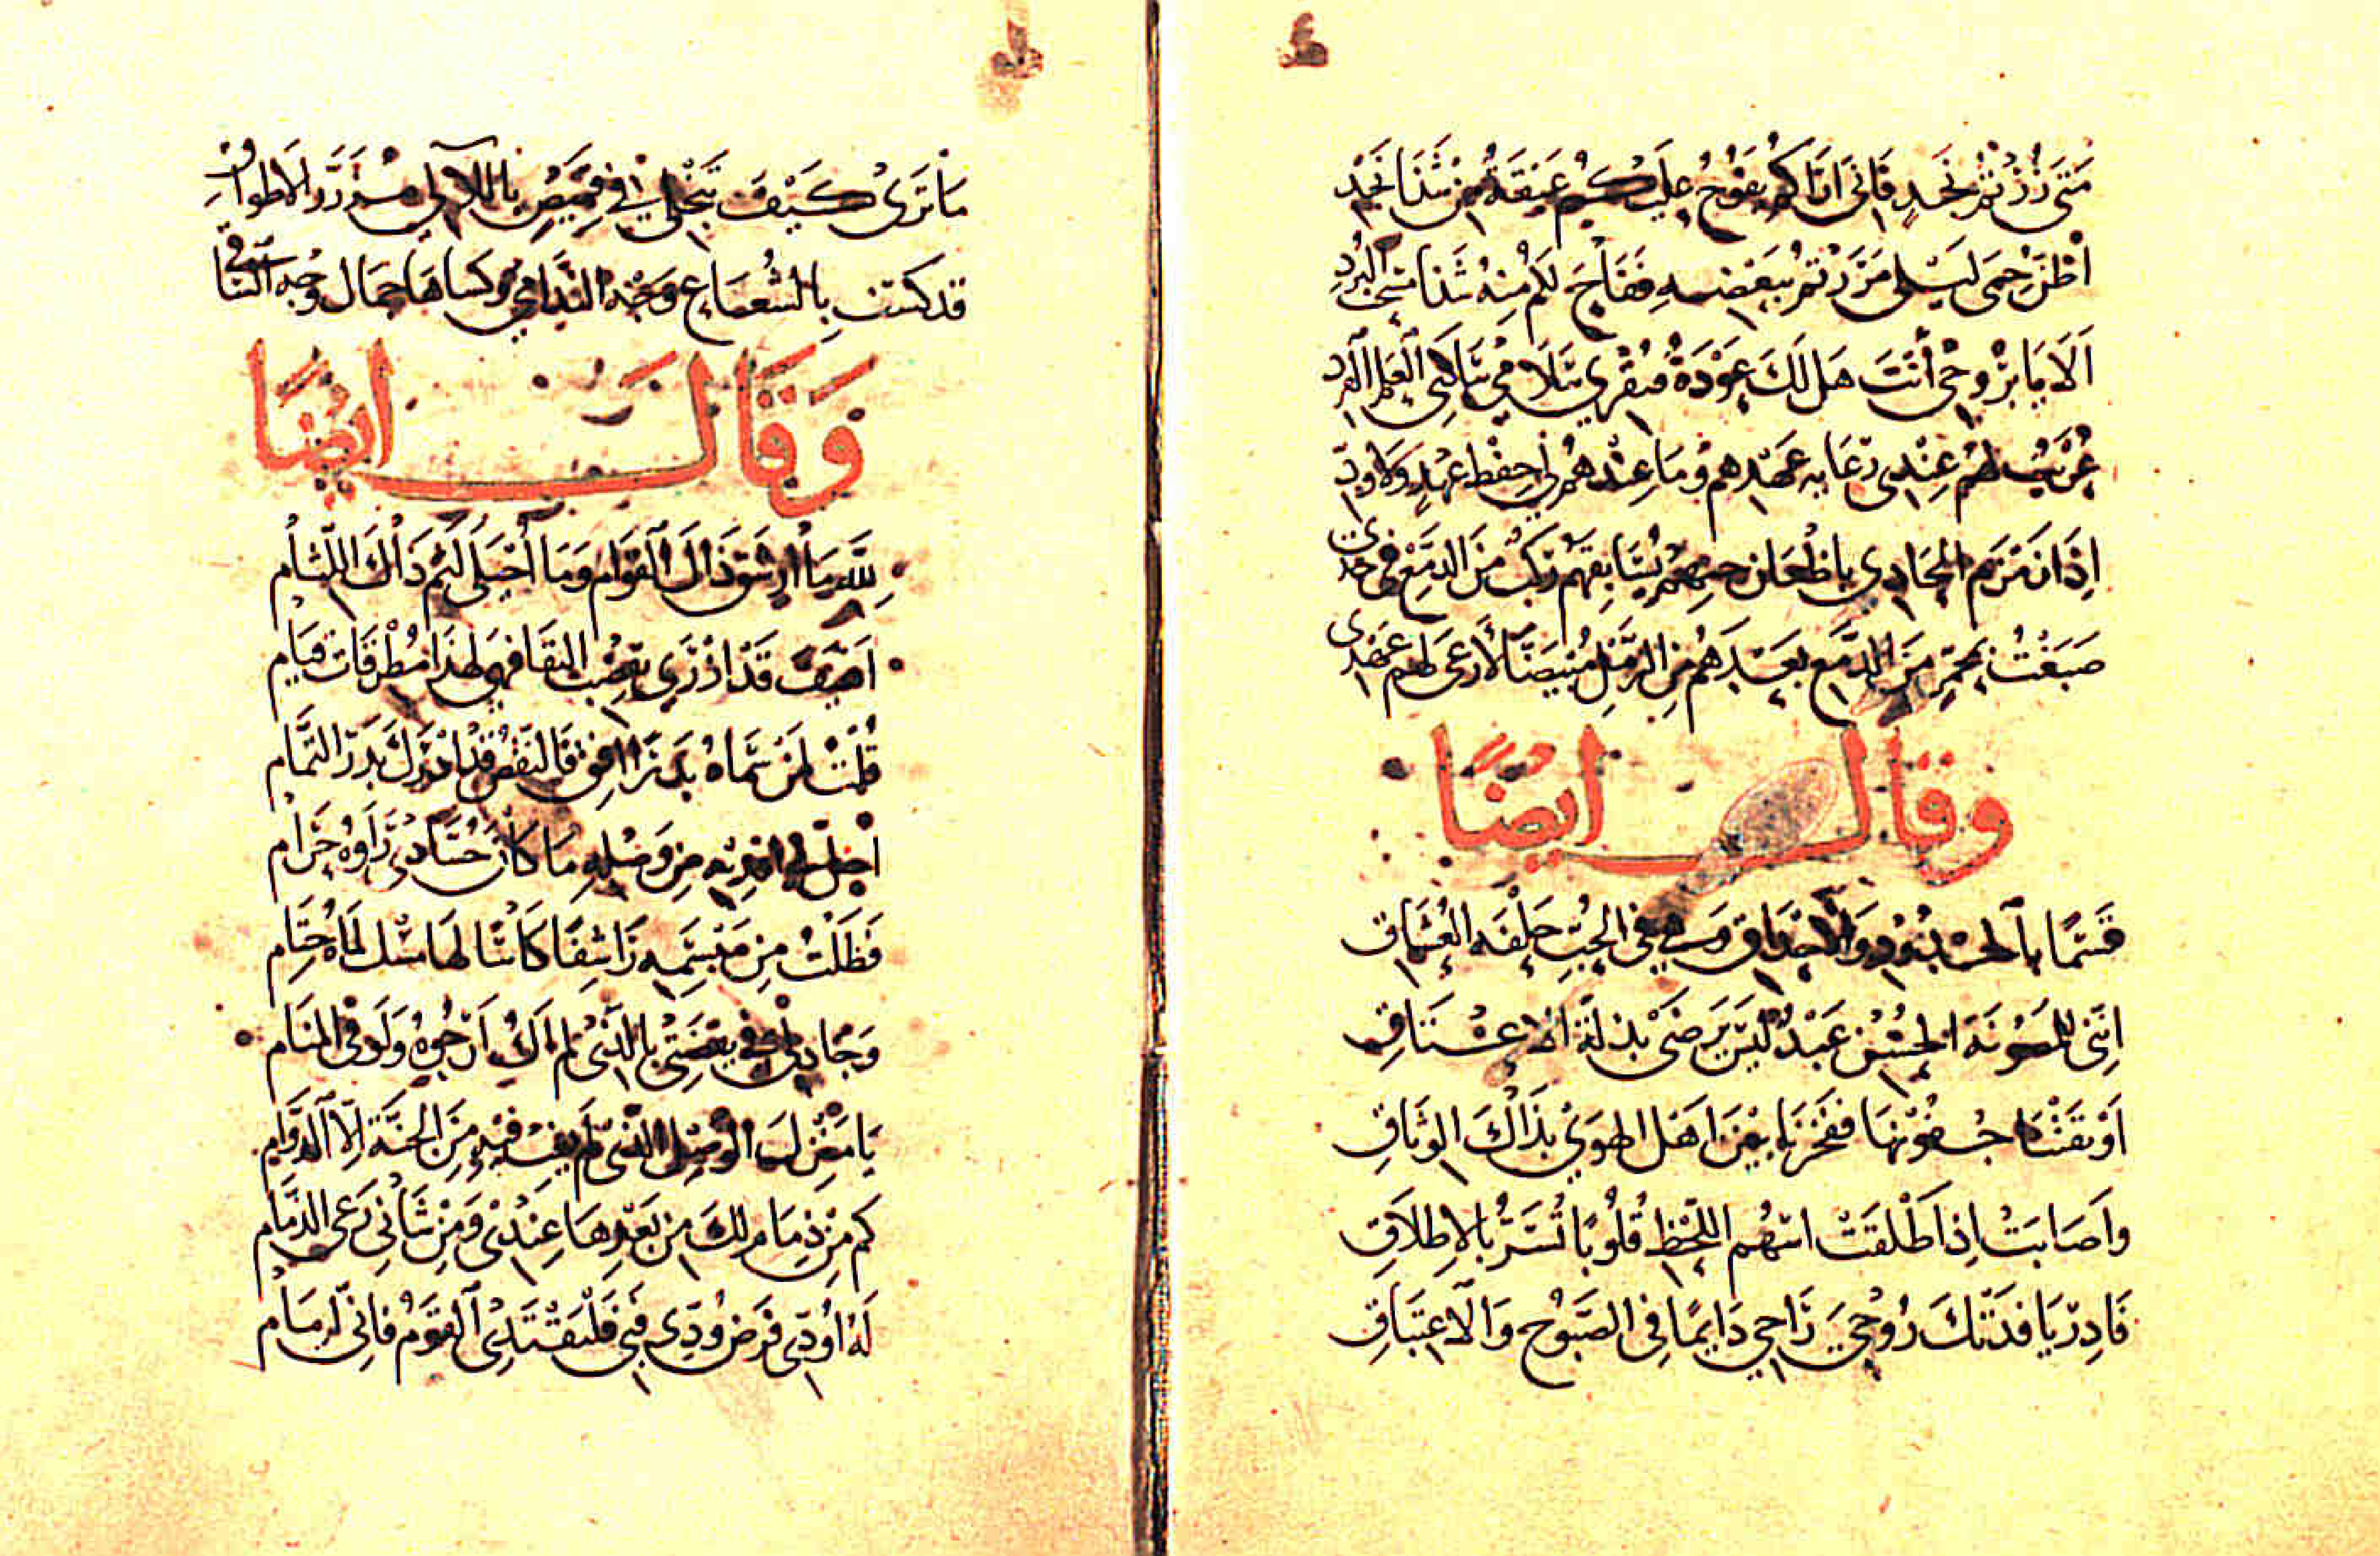 متى زرتم نجد فاني اراكم يفوح عليكم عبقة من شذا نجد
اظن حمى ليلى مررتم ببعضه ففاح لكم منه شذا
الا يا بروحي أنت هل لك عودة فتقري سلامي ساكني العلم الفرد
عريب لهم عندي رعاية عهدهم وما عندهم لي حفظ عهد ولا ود
اذا زمزم الحادي باظعان حيهم يسابقهم ركب من الدمع في خدي
صبغت بمحمر من الدمع بعدهم من الرمل مبيضا لارعى لهم عهدي
وقال ايضا
قسما بالخدود والاحداق وهي في الحب حلفة العشاق
انني للمصونة الحسن عبد ليس يرضى بذلة الاعتاق
اوثقتنا جفونها ففخرنا بين اهل الهوى بذاك الوثاق
واصابت اذ اطلقت اسهم اللحظ قلوبا تسر بالاطلاق
فادر يا فدتك روحي راحي دايما في الصبوح والاغتباق
ما ترى كيف تنجلي في قميص باللآلي مزرر الاطواق
قد كست بالشعاع وجه الندامى وكساها جمال وجه الساقي
وقال ايضا
لله ما ارشق ذاك القوام وما أحيلى لثم ذاك اللثام
اهيف قد ازرى بقضب النقا فهي لهذا مطرقات قيام
قلت لمن سماه بدرا افق فالنقص قد ادرك بدر التمام
احل لي من وصله ما كان حسادي راوه حرام
فظلت من مبسمه راشفا كأسا لها مسك لماه ختام
وجاد لي في يقضتي بالذي لم اك ارجوه ولو في المنام
يا منزل الوصل الذي لم يفت فيه من الجنة الا الدوام
كم من ذمام لك من بعدها عندي ومن شاني رعى الذمام
له اودي فرض ودي فبي فليقتدى القوم فاني امام